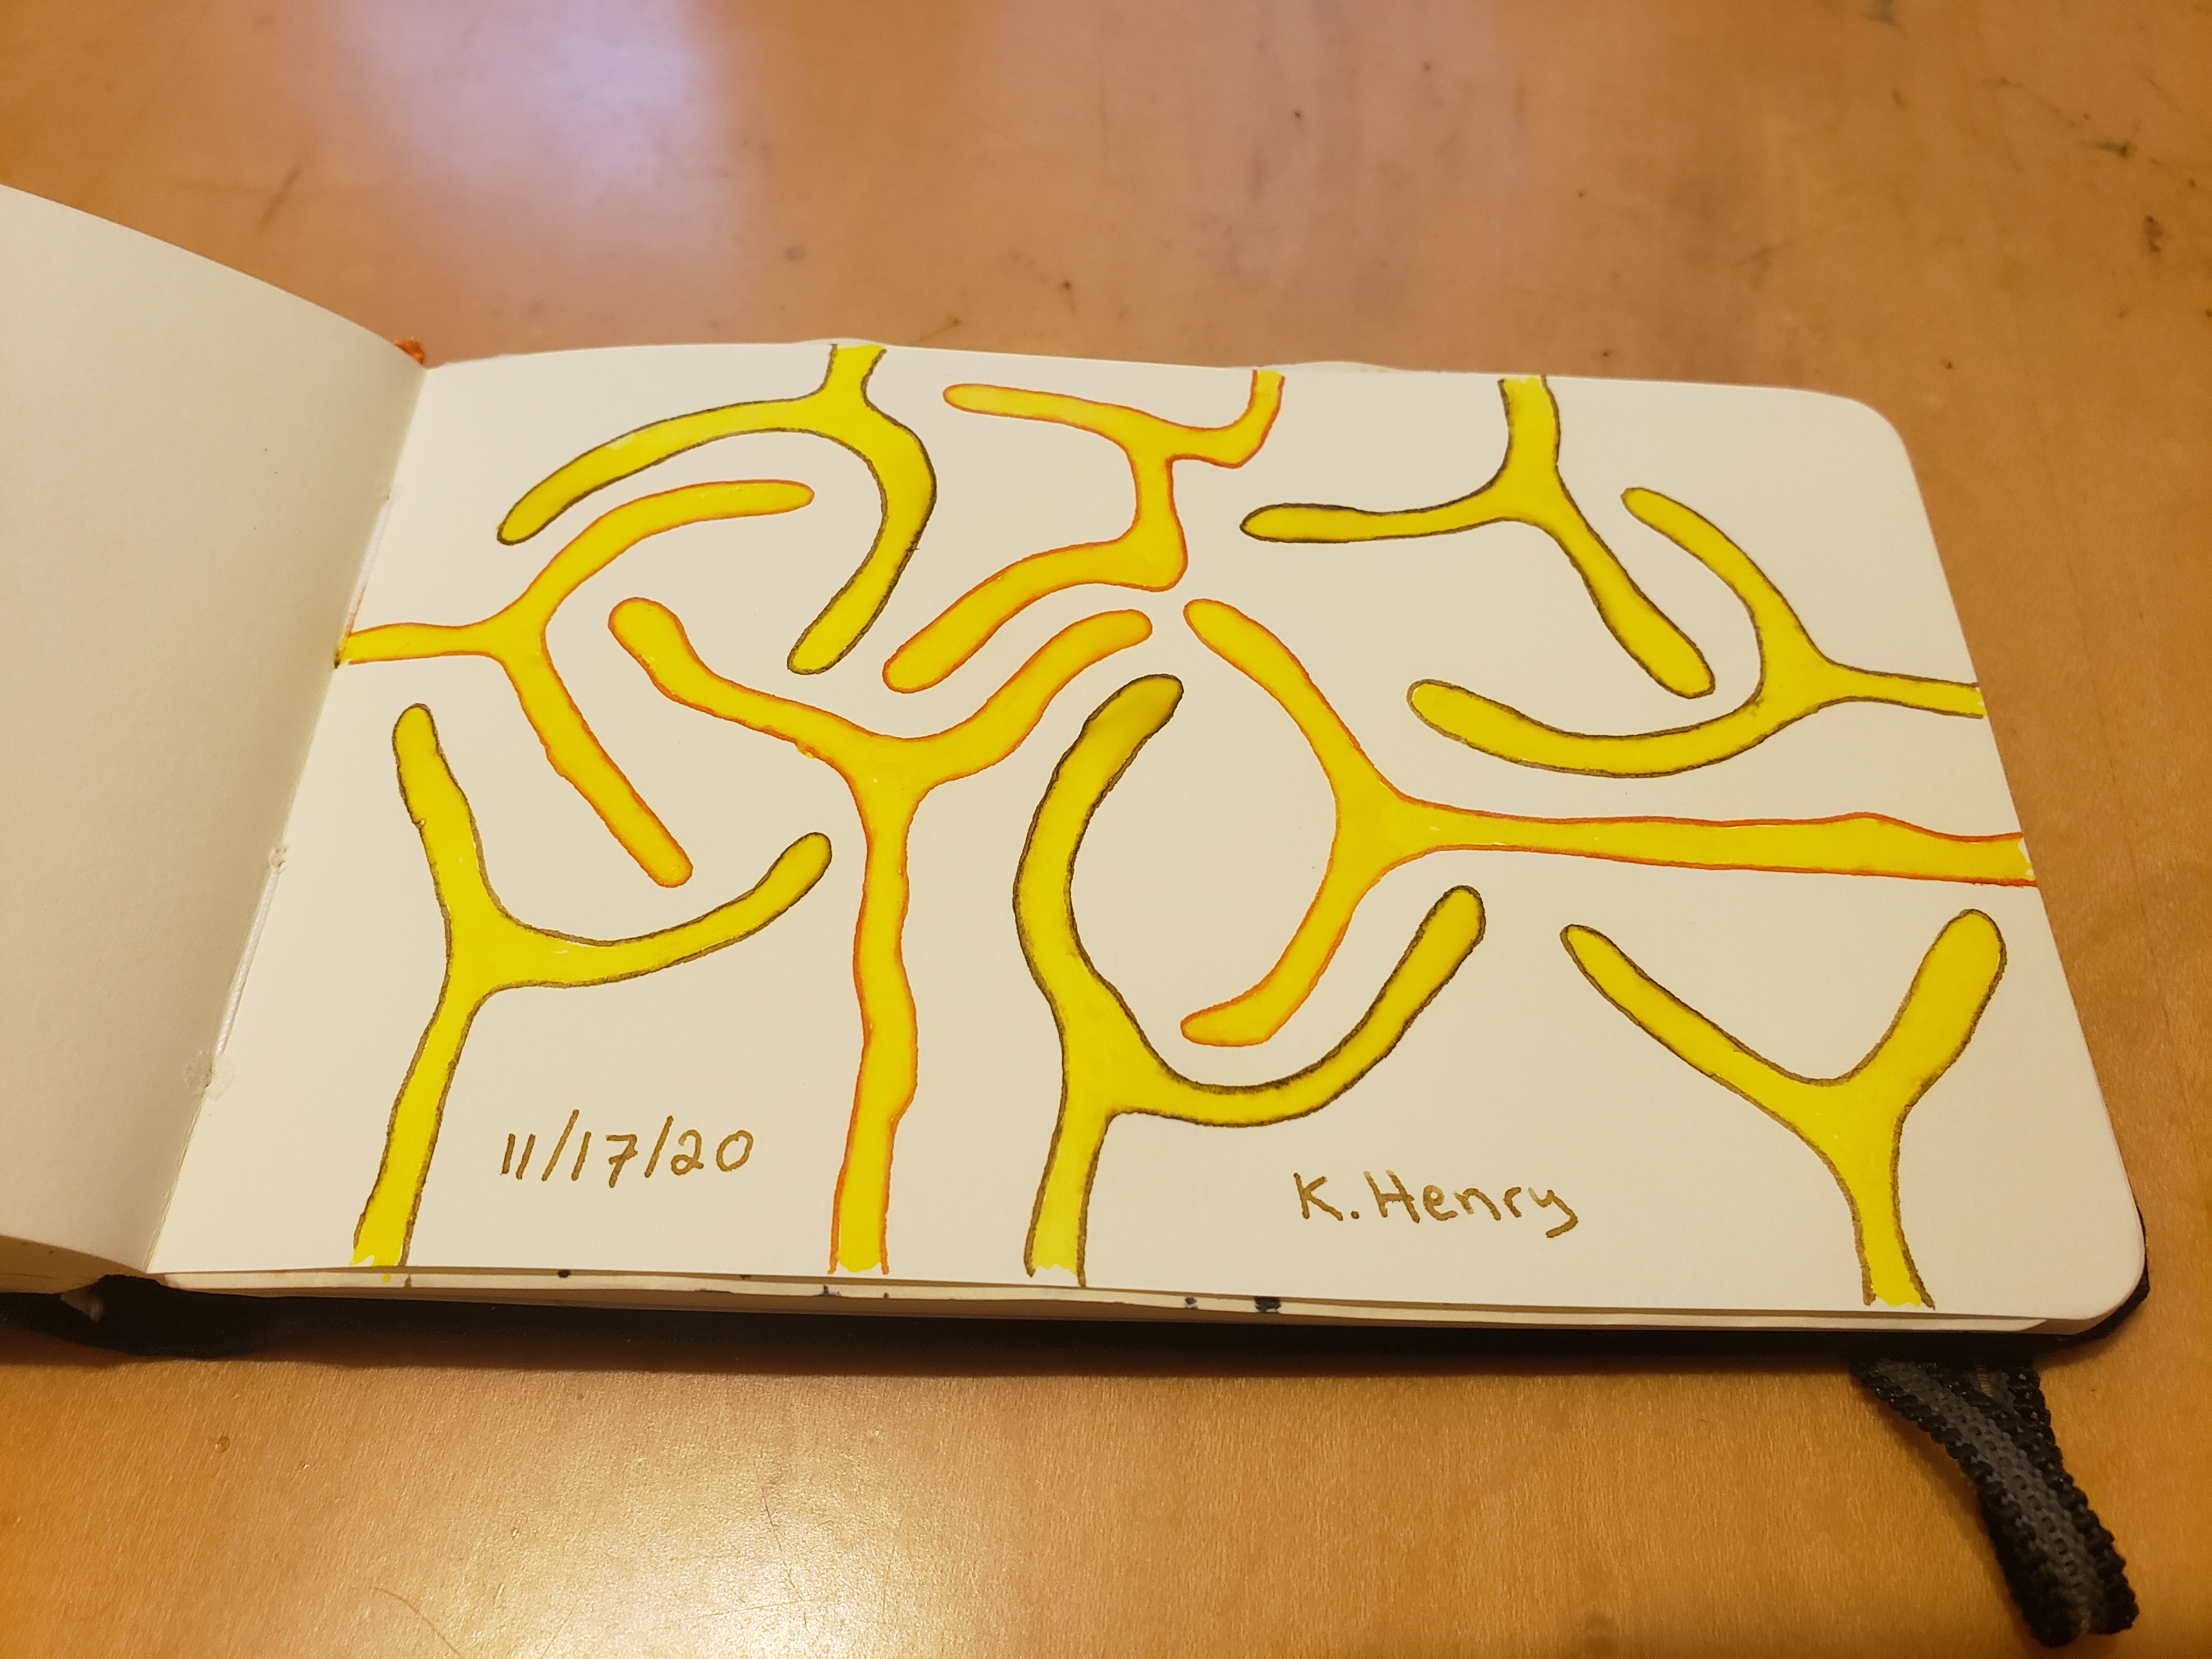 11/17/20
K. Henry